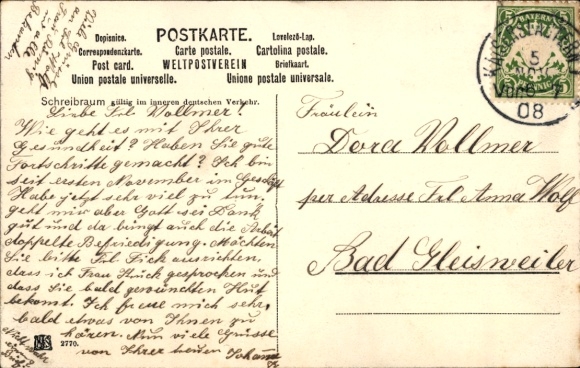 POSTKARTE.
Dopisnice.
Levelező-Lap.
Correspondenzkarte.
Carte postale.
Cartolina postale.
Post card.
WELTPOSTVEREIN
Briefkaart.
Union postale universelle.
Unione postale universale.
Schreibraum gültig im inneren deutschen Verkehr.
BAYERN
5
08
Liebe Frl. Vollmer!
Wie geht es mit Ihrer
Gesundheit? Haben Sie gute
Fortschritte gemacht? Ich bin
seit ersten November im Geschäft
Habe jetzt sehr viel zu tun,
geht mir aber Gott sei Dank
gut und da bringt auch die Arbeit
doppelte Befriedigung. Möchten
Sie bitte Frl. Fick ausrichten,
dass ich Frau gesprochen und
dass Sie bald gewünschten Hut
bekomt. Ich freue mich sehr,
bald etwas von Ihnen zu
hören. Nun viele Grüsse
von Ihrer
Fräulein
Dora Vollmer
per Adresse Frl Anna Wolf
Bad Gleisweiler
2770.